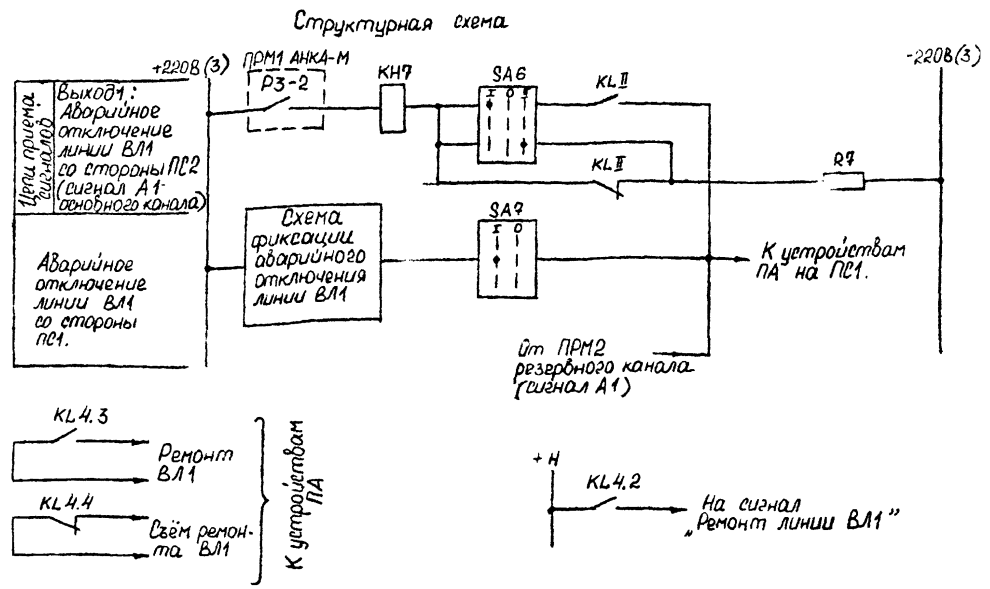 Структурная схема
+220В (3)
ПРМ1 АНКА-М
РЗ-2
КН7
SA6
I O II
KL II
-220В (3)
Цепи приёма сигналов
Выход1,:
Аварийное
отключение
линии ВЛ1
со стороны ПС2
(сигнал А1-
основного канала)
KL II
R7
Аварийное
отключение
линии ВЛ1
со стороны
ПС1.
Схема
фиксации
аварийного
отключения
линии ВЛ1
SA7
I O
К устройствам
ПА на ПС1.
От ПРМ2
резервного канала
(сигнал А1)
KL4.3
Ремонт
ВЛ1
KL4.4
Съём ремон-
та ВЛ1
К устройствам
ПА
+ Н
KL4.2
На сигнал
„Ремонт линии ВЛ1”